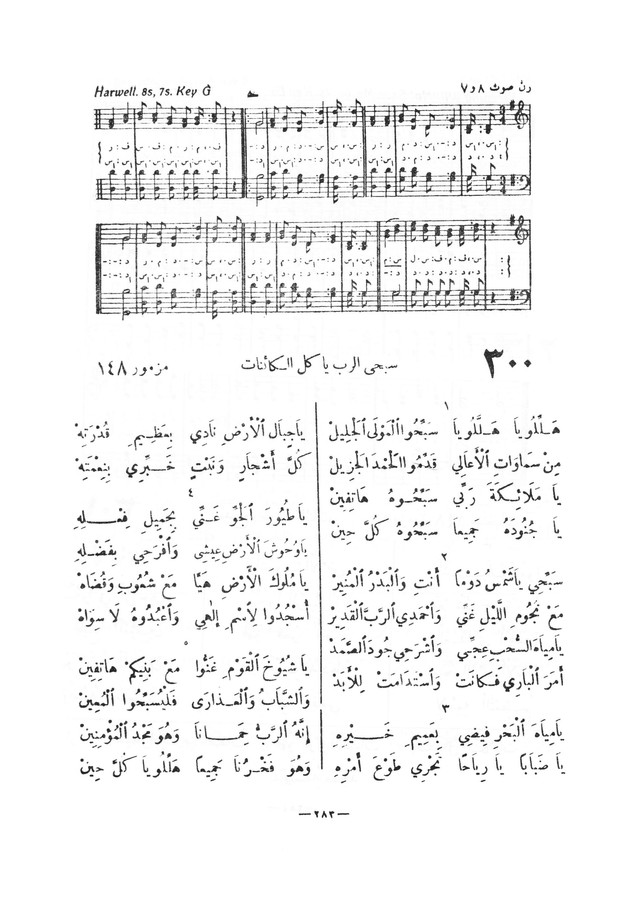 Harwell. 8s, 7s. Key G رن صوت ٨ و٧
٣٠٠ سبحي الرب يا كل الكائنات مزمور ١٤٨
١
هَلِّلُويَا هَلِّلُويَا سَبِّحُوا ٱلْمَوْلَى ٱلْجَلِيلْ
مِنْ سَمَاوَاتِ ٱلْأَعَالِي قَدِّمُوا ٱلْحَمْدَ ٱلْجَزِيلْ
يَا مَلَائِكَةَ رَبِّي سَبِّحُوهُ هَاتِفِينْ
يَا جُنُودَهُ جَمِيعًا سَبِّحُوهُ كُلَّ حِينْ
٢
سَبِّحِي يَا شَمْسُ دَوْمًا أَنْتِ وَٱلْبَدْرُ ٱلْمُنِيرْ
مَعْ نُجُومِ ٱللَّيْلِ غَنِّي وَٱحْمَدِي ٱلرَّبَّ ٱلْقَدِيرْ
يَا مِيَاهَ ٱلسُّحْبِ عِجِّي وَٱشْرَحِي جُودَ ٱلصَّمَدْ
أَمَرَ ٱلْبَارِي فَكَانَتْ وَٱسْتَدَامَتْ لِلْأَبَدْ
٣
يَامِيَاهَ ٱلْبَحْرِ فِيضِي بِعَمِيمِ خَيْرِهِ
يَا ضَبَابًا يَا رِيَاحًا تَجْرِي طَوْعَ أَمْرِهِ
يَا جِبَالَ ٱلْأَرْضِ نَادِي بِعَظِيمِ قُدْرَتِهْ
كُلَّ أَشْجَارٍ وَنَبْتٍ خَبِّرِي بِنِعْمَتِهْ
٤
يَا طُيُورَ ٱلْجَوِّ غَنِّي بِجَمِيلِ فِعْلِهِ
يَا وُحُوشَ ٱلْأَرْضِ عِيشِي وَٱفْرَحِي بِفَضْلِهِ
يَا مُلُوكَ ٱلْأَرْضِ هَيَّا مَعْ شُعُوبٍ وَقُضَاهْ
أُسْجُدُوا لِٱسْمِ إِلَٰهِي وَٱعْبُدُوهُ لَا سِوَاهْ
٥
يَا شُيُوخَ ٱلْقَوْمِ غَنُّوا مَعْ بَنِيكُمْ هَاتِفِينْ
وَٱلشَّبَابُ وَٱلْعَذَارَى فَلْيُسَبِّحُوا ٱلْمُعِينْ
إِنَّهُ ٱلرَّبُّ حِمَانَا وَهُوَ مَجْدُ ٱلْمُؤْمِنِينْ
وَهُوَ فَخْرُنَا جَمِيعًا هَلِّلُويَا كُلَّ حِينْ
— ٢٨٣ —